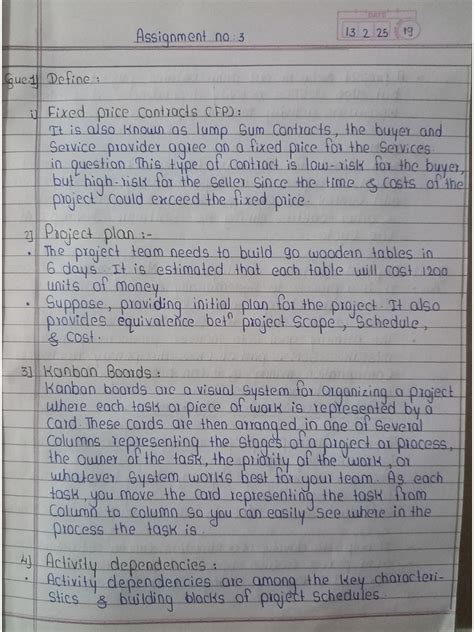 DATE
13 2 25 19
Assignment no: 3
Que 1) Define :
i) Fixed price contracts (FP) :
It is also known as lump sum contracts, the buyer and
service provider agree on a fixed price for the services
in question. This type of contract is low-risk for the buyer,
but high-risk for the seller since the time & costs of the
project could exceed the fixed price.
2] Project plan :-
• The project team needs to build 90 wooden tables in
6 days. It is estimated that each table will cost 1200
units of money.
• Suppose, providing initial plan for the project. It also
provides equivalence betn project scope, schedule,
& cost.
3] Kanban Boards :
Kanban boards are a visual system for organizing a project
where each task or piece of work is represented by a
card. These cards are then arranged in one of several
columns representing the stages of a project or process,
the owner of the task, the priority of the work, or
whatever system works best for your team. As each
task, you move the card representing the task from
column to column so you can easily see where in the
process the task is.
4] Activity dependencies :
• Activity dependencies are among the key characteri-
stics & building blocks of project schedules.